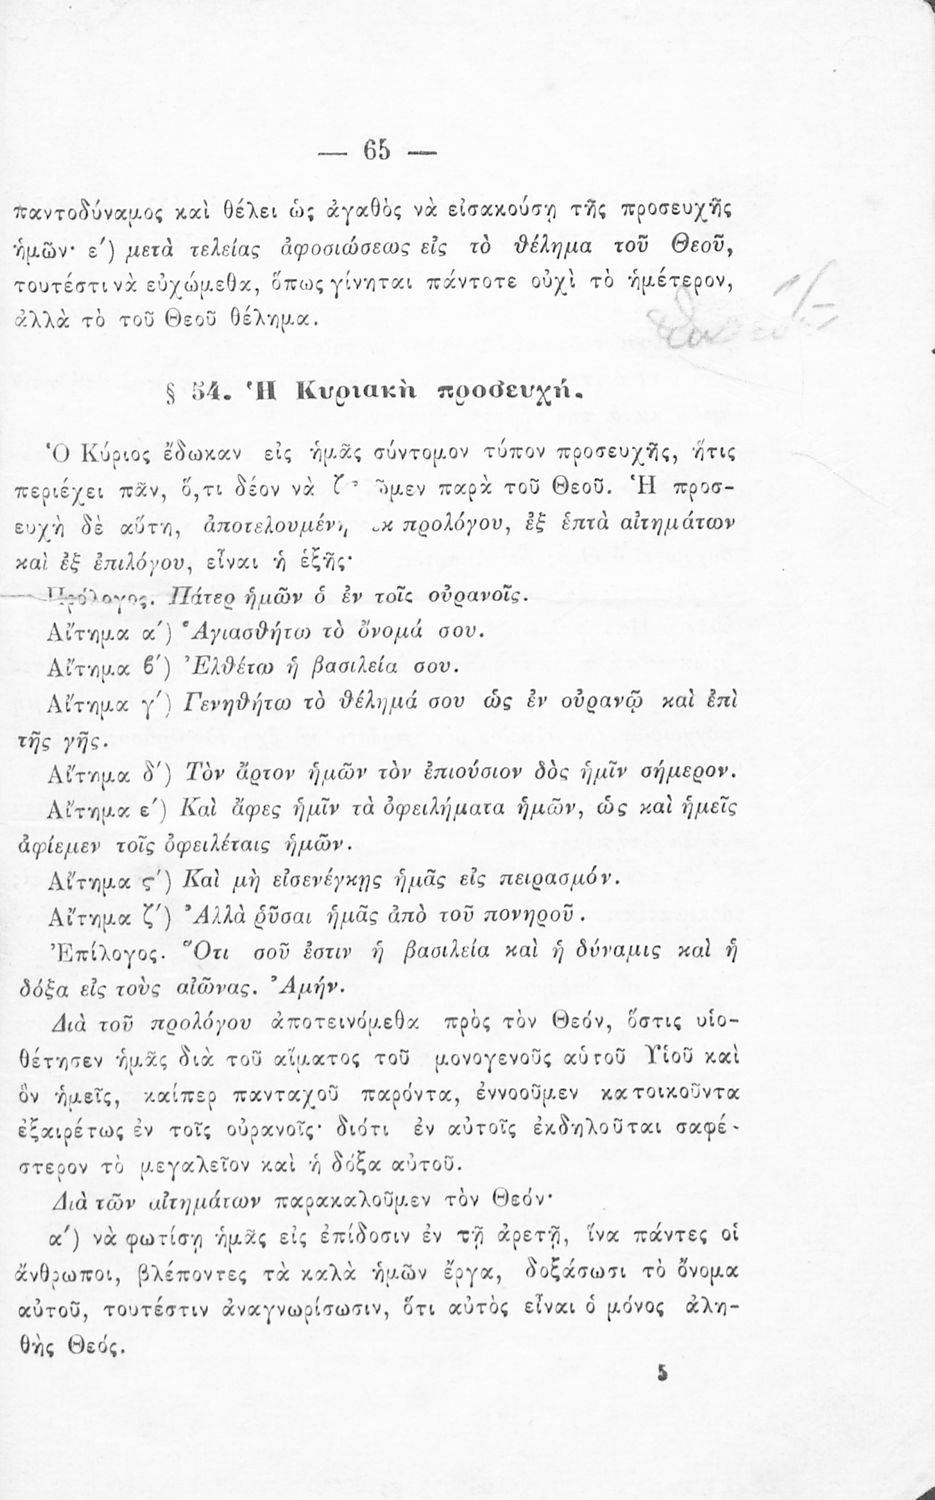 — 65 —
παντοδύναμος καὶ θέλει ὡς ἀγαθὸς νὰ εἰσακούσῃ τῆς προσευχῆς
ἡμῶν· ε΄) μετὰ τελείας ἀφοσιώσεως εἰς τὸ θέλημα τοῦ Θεοῦ,
τουτέστι νὰ εὐχώμεθα, ὅπως γίνηται πάντοτε οὐχὶ τὸ ἡμέτερον,
ἀλλὰ τὸ τοῦ Θεοῦ θέλημα.
§ 54. Ἡ Κυριακὴ προσευχή.
Ὁ Κύριος ἔδωκαν εἰς ἡμᾶς σύντομον τύπον προσευχῆς, ἥτις
περιέχει πᾶν, ὅ,τι δέον νὰ παρὰ τοῦ Θεοῦ. Ἡ προσ-
ευχὴ δὲ αὕτη, ἀποτελουμένη ἐκ προλόγου, ἐξ ἑπτὰ αἰτημάτων
καὶ ἐξ ἐπιλόγου, εἶναι ἡ ἑξῆς·
Πρόλογος. Πάτερ ἡμῶν ὁ ἐν τοῖς οὐρανοῖς.
Αἴτημα α΄) Ἁγιασθήτω τὸ ὄνομά σου.
Αἴτημα β΄) Ἐλθέτω ἡ βασιλεία σου.
Αἴτημα γ΄) Γενηθήτω τὸ θέλημά σου ὡς ἐν οὐρανῷ καὶ ἐπὶ
τῆς γῆς.
Αἴτημα δ΄) Τὸν ἄρτον ἡμῶν τὸν ἐπιούσιον δὸς ἡμῖν σήμερον.
Αἴτημα ε΄) Καὶ ἄφες ἡμῖν τὰ ὀφειλήματα ἡμῶν, ὡς καὶ ἡμεῖς
ἀφίεμεν τοῖς ὀφειλέταις ἡμῶν.
Αἴτημα ϛ΄) Καὶ μὴ εἰσενέγκῃς ἡμᾶς εἰς πειρασμόν.
Αἴτημα ζ΄) Ἀλλὰ ῥῦσαι ἡμᾶς ἀπὸ τοῦ πονηροῦ.
Ἐπίλογος. Ὅτι σοῦ ἐστιν ἡ βασιλεία καὶ ἡ δύναμις καὶ ἡ
δόξα εἰς τοὺς αἰῶνας. Ἀμήν.
Διὰ τοῦ προλόγου ἀποτεινόμεθα πρὸς τὸν Θεόν, ὅστις υἱο-
θέτησεν ἡμᾶς διὰ τοῦ αἵματος τοῦ μονογενοῦς αὑτοῦ Υἱοῦ καὶ
ὃν ἡμεῖς, καίπερ πανταχοῦ παρόντα, ἐννοοῦμεν κατοικοῦντα
ἐξαιρέτως ἐν τοῖς οὐρανοῖς· διότι ἐν αὐτοῖς ἐκδηλοῦται σαφέ-
στερον τὸ μεγαλεῖον καὶ ἡ δόξα αὐτοῦ.
Διὰ τῶν αἰτημάτων παρακαλοῦμεν τὸν Θεόν·
α΄) νὰ φωτίσῃ ἡμᾶς εἰς ἐπίδοσιν ἐν τῇ ἀρετῇ, ἵνα πάντες οἱ
ἄνθρωποι, βλέποντες τὰ καλὰ ἡμῶν ἔργα, δοξάσωσι τὸ ὄνομα
αὐτοῦ, τουτέστιν ἀναγνωρίσωσιν, ὅτι αὐτὸς εἶναι ὁ μόνος ἀλη-
θὴς Θεός.
5